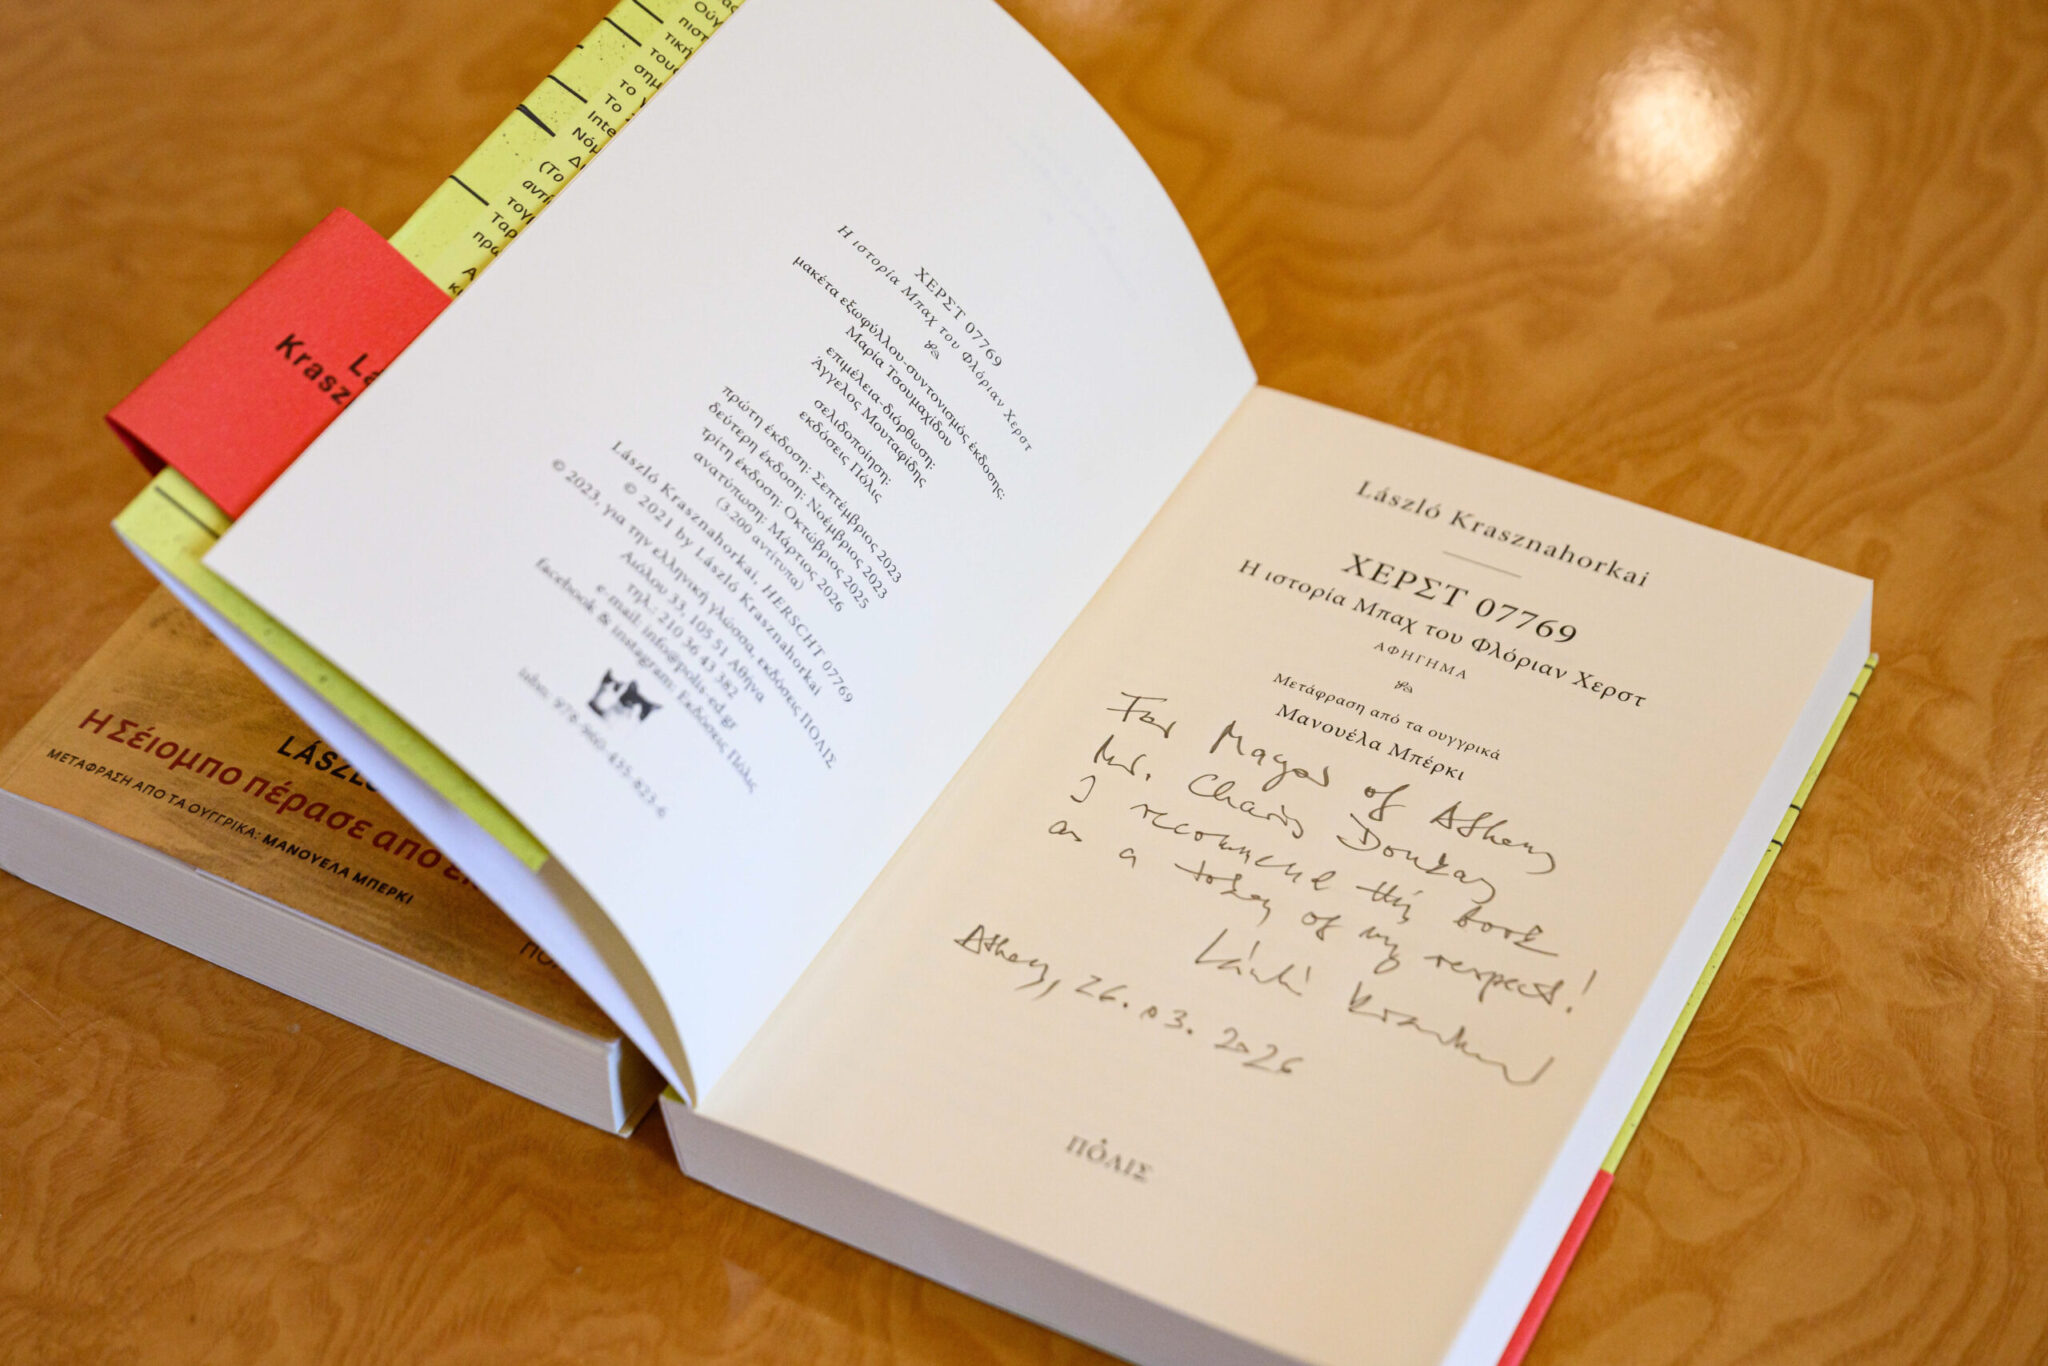 Ούγ
πιστ
τική
τους
σημ
το
Το
Inte
Νόμ
(Το
αντή
τογ
Ταρ
πρώ
Lá
Krasz
ΧΕΡΣΤ 07769
Η ιστορία Μπαχ του Φλόριαν Χερστ
μακέτα εξωφύλλου-συντονισμός έκδοσης:
Μαρία Τσουμαχίδου
επιμέλεια-διόρθωση:
Άγγελος Μουταφίδης
σελιδοποίηση:
εκδόσεις Πόλις
πρώτη έκδοση: Σεπτέμβριος 2023
δεύτερη έκδοση: Νοέμβριος 2023
τρίτη έκδοση: Οκτώβριος 2025
ανατύπωση: Μάρτιος 2026
(3.200 αντίτυπα)
László Krasznahorkai, HERSCHT 07769
© 2021 by László Krasznahorkai
© 2023, για την ελληνική γλώσσα, εκδόσεις ΠΟΛΙΣ
Αιόλου 33, 105 51 Αθήνα
τηλ.: 210 36 43 382
e-mail: info@polis-ed.gr
facebook & instagram: Εκδόσεις Πόλις
isbn: 978-960-435-823-6
László Krasznahorkai
ΧΕΡΣΤ 07769
Η ιστορία Μπαχ του Φλόριαν Χερστ
ΑΦΗΓΗΜΑ
Μετάφραση από τα ουγγρικά
Μανουέλα Μπέρκι
For Mayor of Athens
Mr. Charis Doukas
I recommend this book
as a token of my respect!
László Krasznahorkai
Athens, 26.03.2026
ΠΟΛΙΣ
LÁSZL
Η Σέιομπο πέρασε από
ΜΕΤΑΦΡΑΣΗ ΑΠΟ ΤΑ ΟΥΓΓΡΙΚΑ: ΜΑΝΟΥΕΛΑ ΜΠΕΡΚΙ
ΠΟ